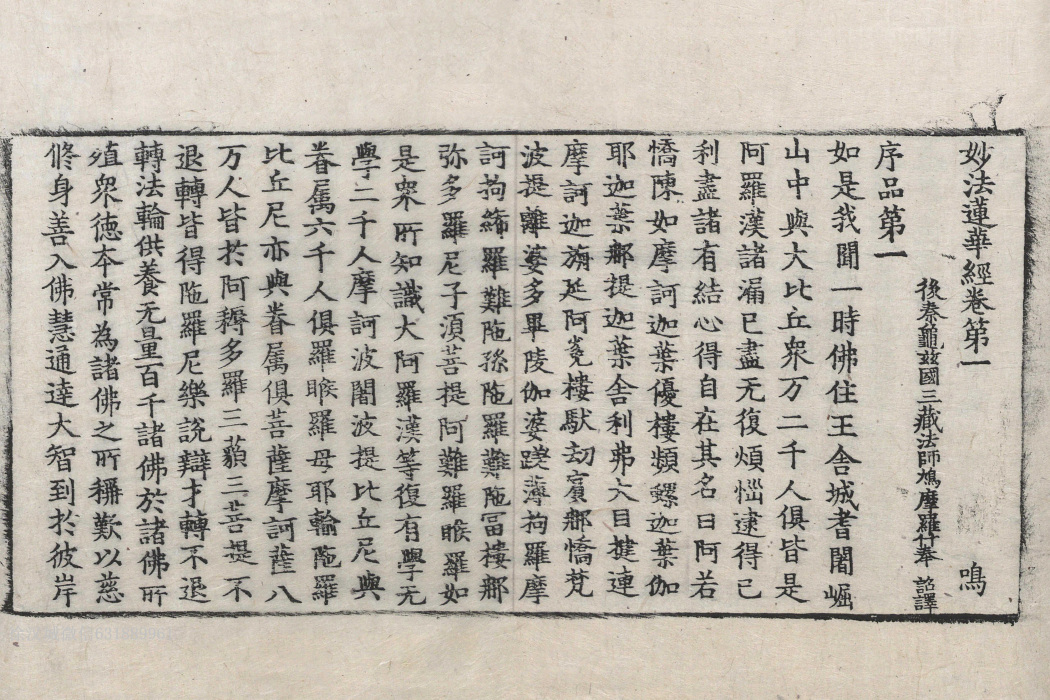 妙法蓮華經卷第一 鳴
後秦龜兹國三藏法師鳩摩羅什奉 詔譯
序品第一
如是我聞一時佛住王舍城耆闍崛
山中與大比丘衆万二千人俱皆是
阿羅漢諸漏已盡无復煩惱逮得己
利盡諸有結心得自在其名曰阿若
憍陳如摩訶迦葉優樓頻螺迦葉伽
耶迦葉那提迦葉舍利弗大目揵連
摩訶迦旃延阿㝹樓馱劫賓那憍梵
波提離婆多畢陵伽婆蹉薄拘羅摩
訶拘絺羅難陁孫陁羅難陁冨樓那
弥多羅尼子湏菩提阿難羅睺羅如
是衆所知識大阿羅漢等復有學无
學二千人摩訶波闍波提比丘尼與
眷属六千人俱羅睺羅母耶輸陁羅
比丘尼亦與眷属俱菩薩摩訶薩八
万人皆於阿耨多羅三藐三菩提不
退轉皆得陁羅尼樂說辯才轉不退
轉法輪供養无量百千諸佛於諸佛所
殖衆德本常為諸佛之所稱歎以慈
脩身善入佛慧通達大智到於彼岸